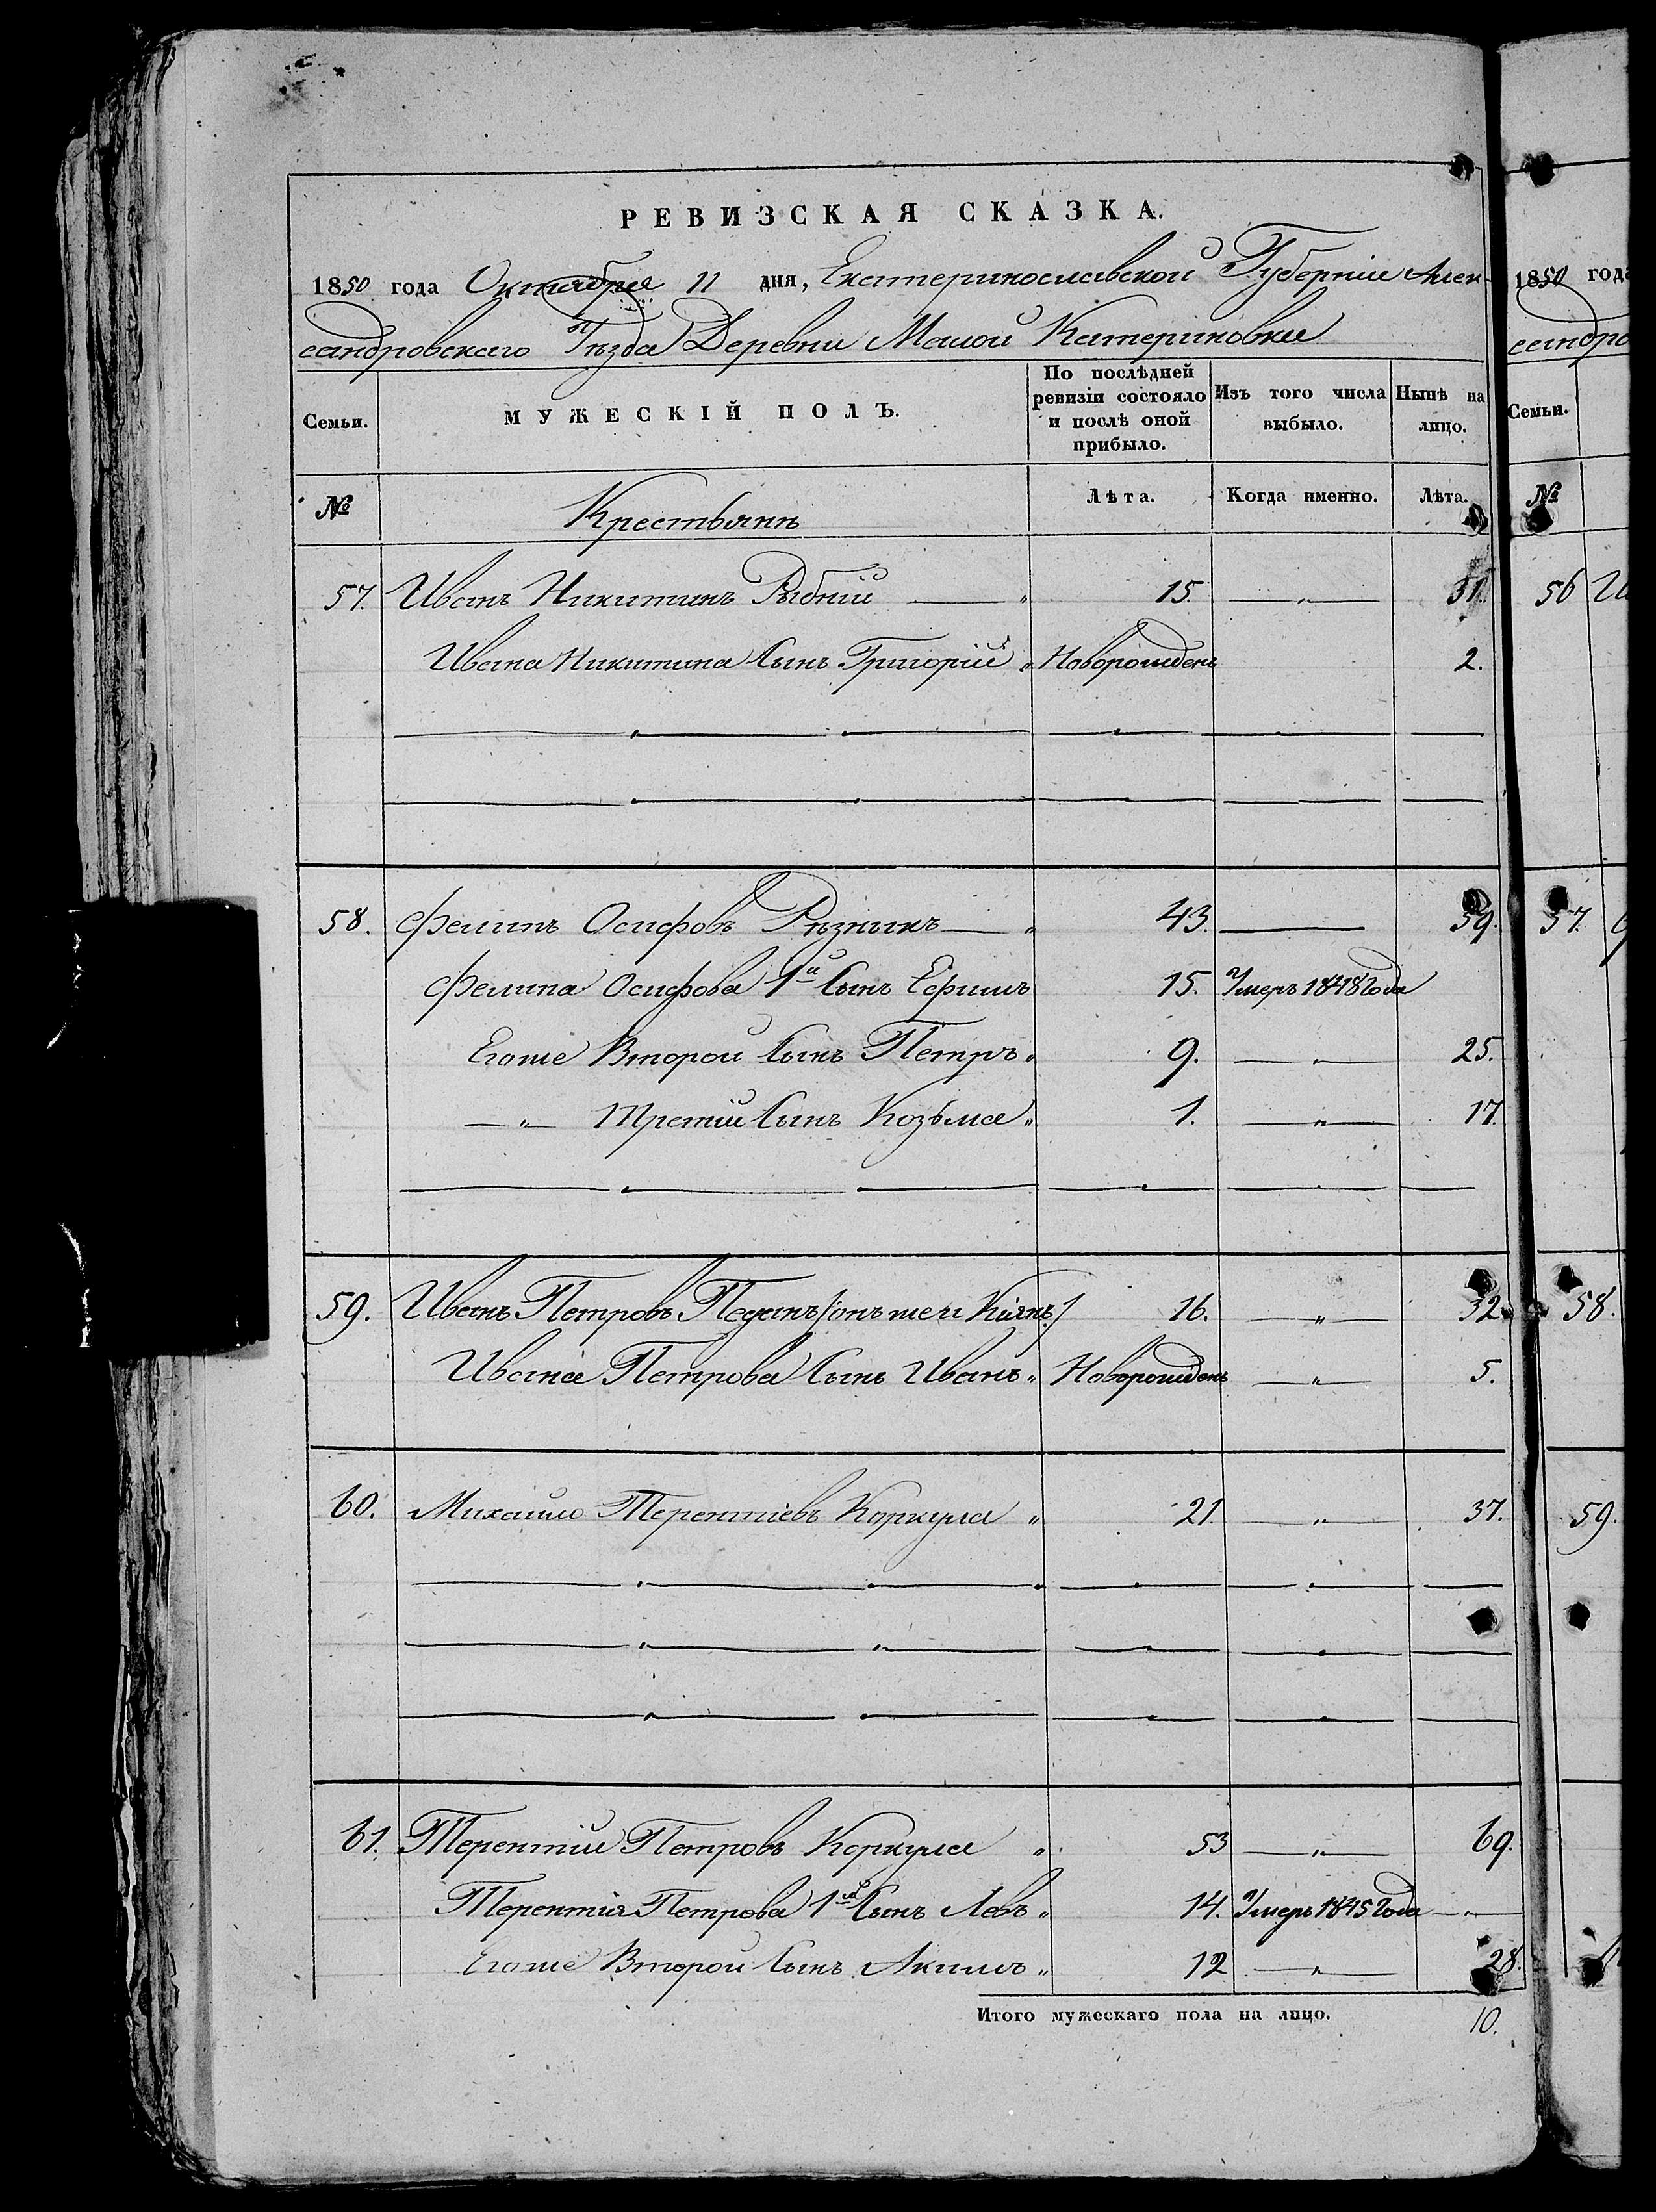 РЕВИЗСКАЯ СКАЗКА.
1850 года Октября 11 дня, Екатеринославской Губерніи Алек-
сандровскаго Уѣзда Деревни Малой Катериновки
Семьи. МУЖЕСКІЙ ПОЛЪ. По послѣдней ревизіи состояло и послѣ оной прибыло. Изъ того числа выбыло. Нынѣ на лицо.
№ Крестьянъ Лѣта. Когда именно. Лѣта.
57. Иванъ Никитинъ Рыбній 15. 31.
Ивана Никитина Сынъ Григорій Новорожденъ 2.
58. Филипъ Осифовъ Рѣзныкъ 43. 59.
Филипа Осифова 1й Сынъ Ефимъ 15. Умеръ 1848 года
Егоже Второй Сынъ Петръ 9. 25.
Третій Сынъ Козьма 1. 17.
59. Иванъ Петровъ (онъ же и Киянъ) 16. 32.
Ивана Петрова Сынъ Иванъ Новорожденъ 5.
60. Михайло Терентіевъ Коркула 21. 37.
61. Терентій Петровъ Коркула 53 69.
Терентія Петрова 1й Сынъ Левъ 14. Умеръ 1845 Года
Егоже Второй Сынъ Акимъ 12 28.
Итого мужескаго пола на лицо. 10.
1850 года
сандро
Семьи.
№
56
57.
58.
59.